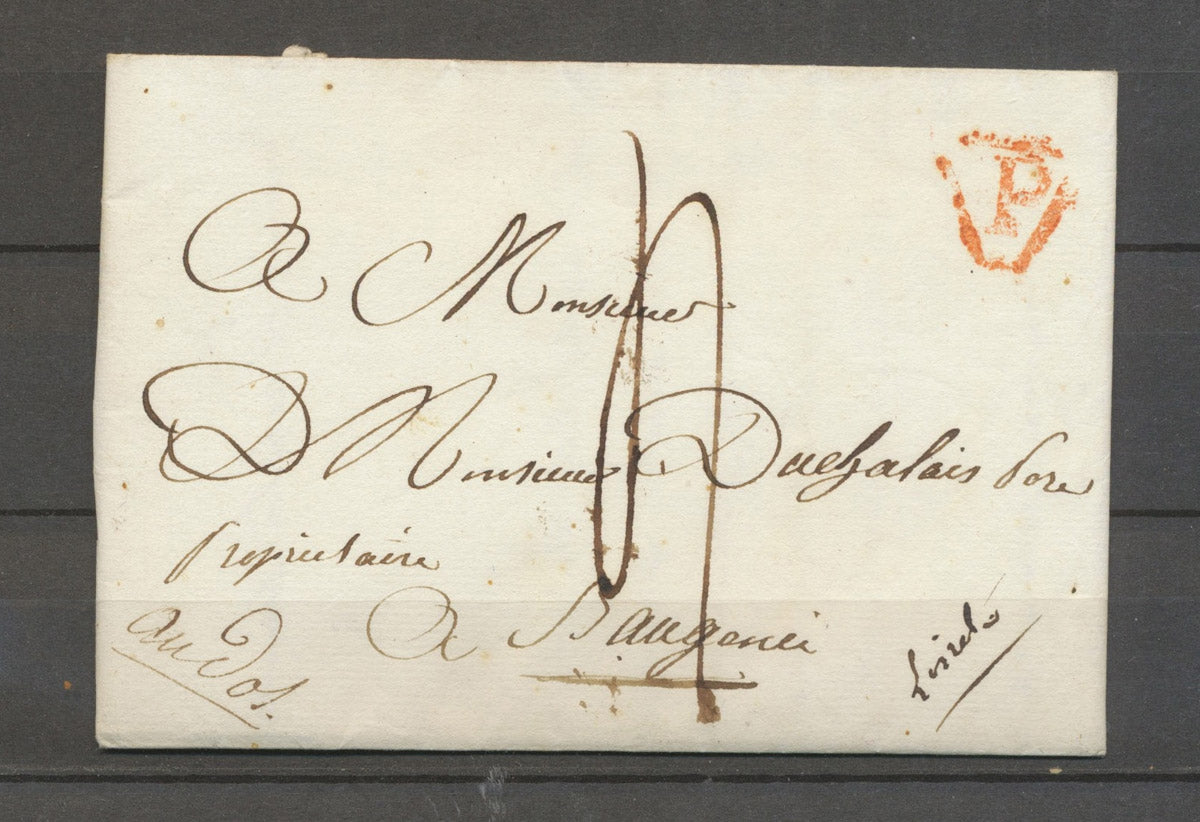 P
A Monsieur
D Monsieur Duchalais pere
propriétaire
A Baugenci
au dos.
Loiret
4